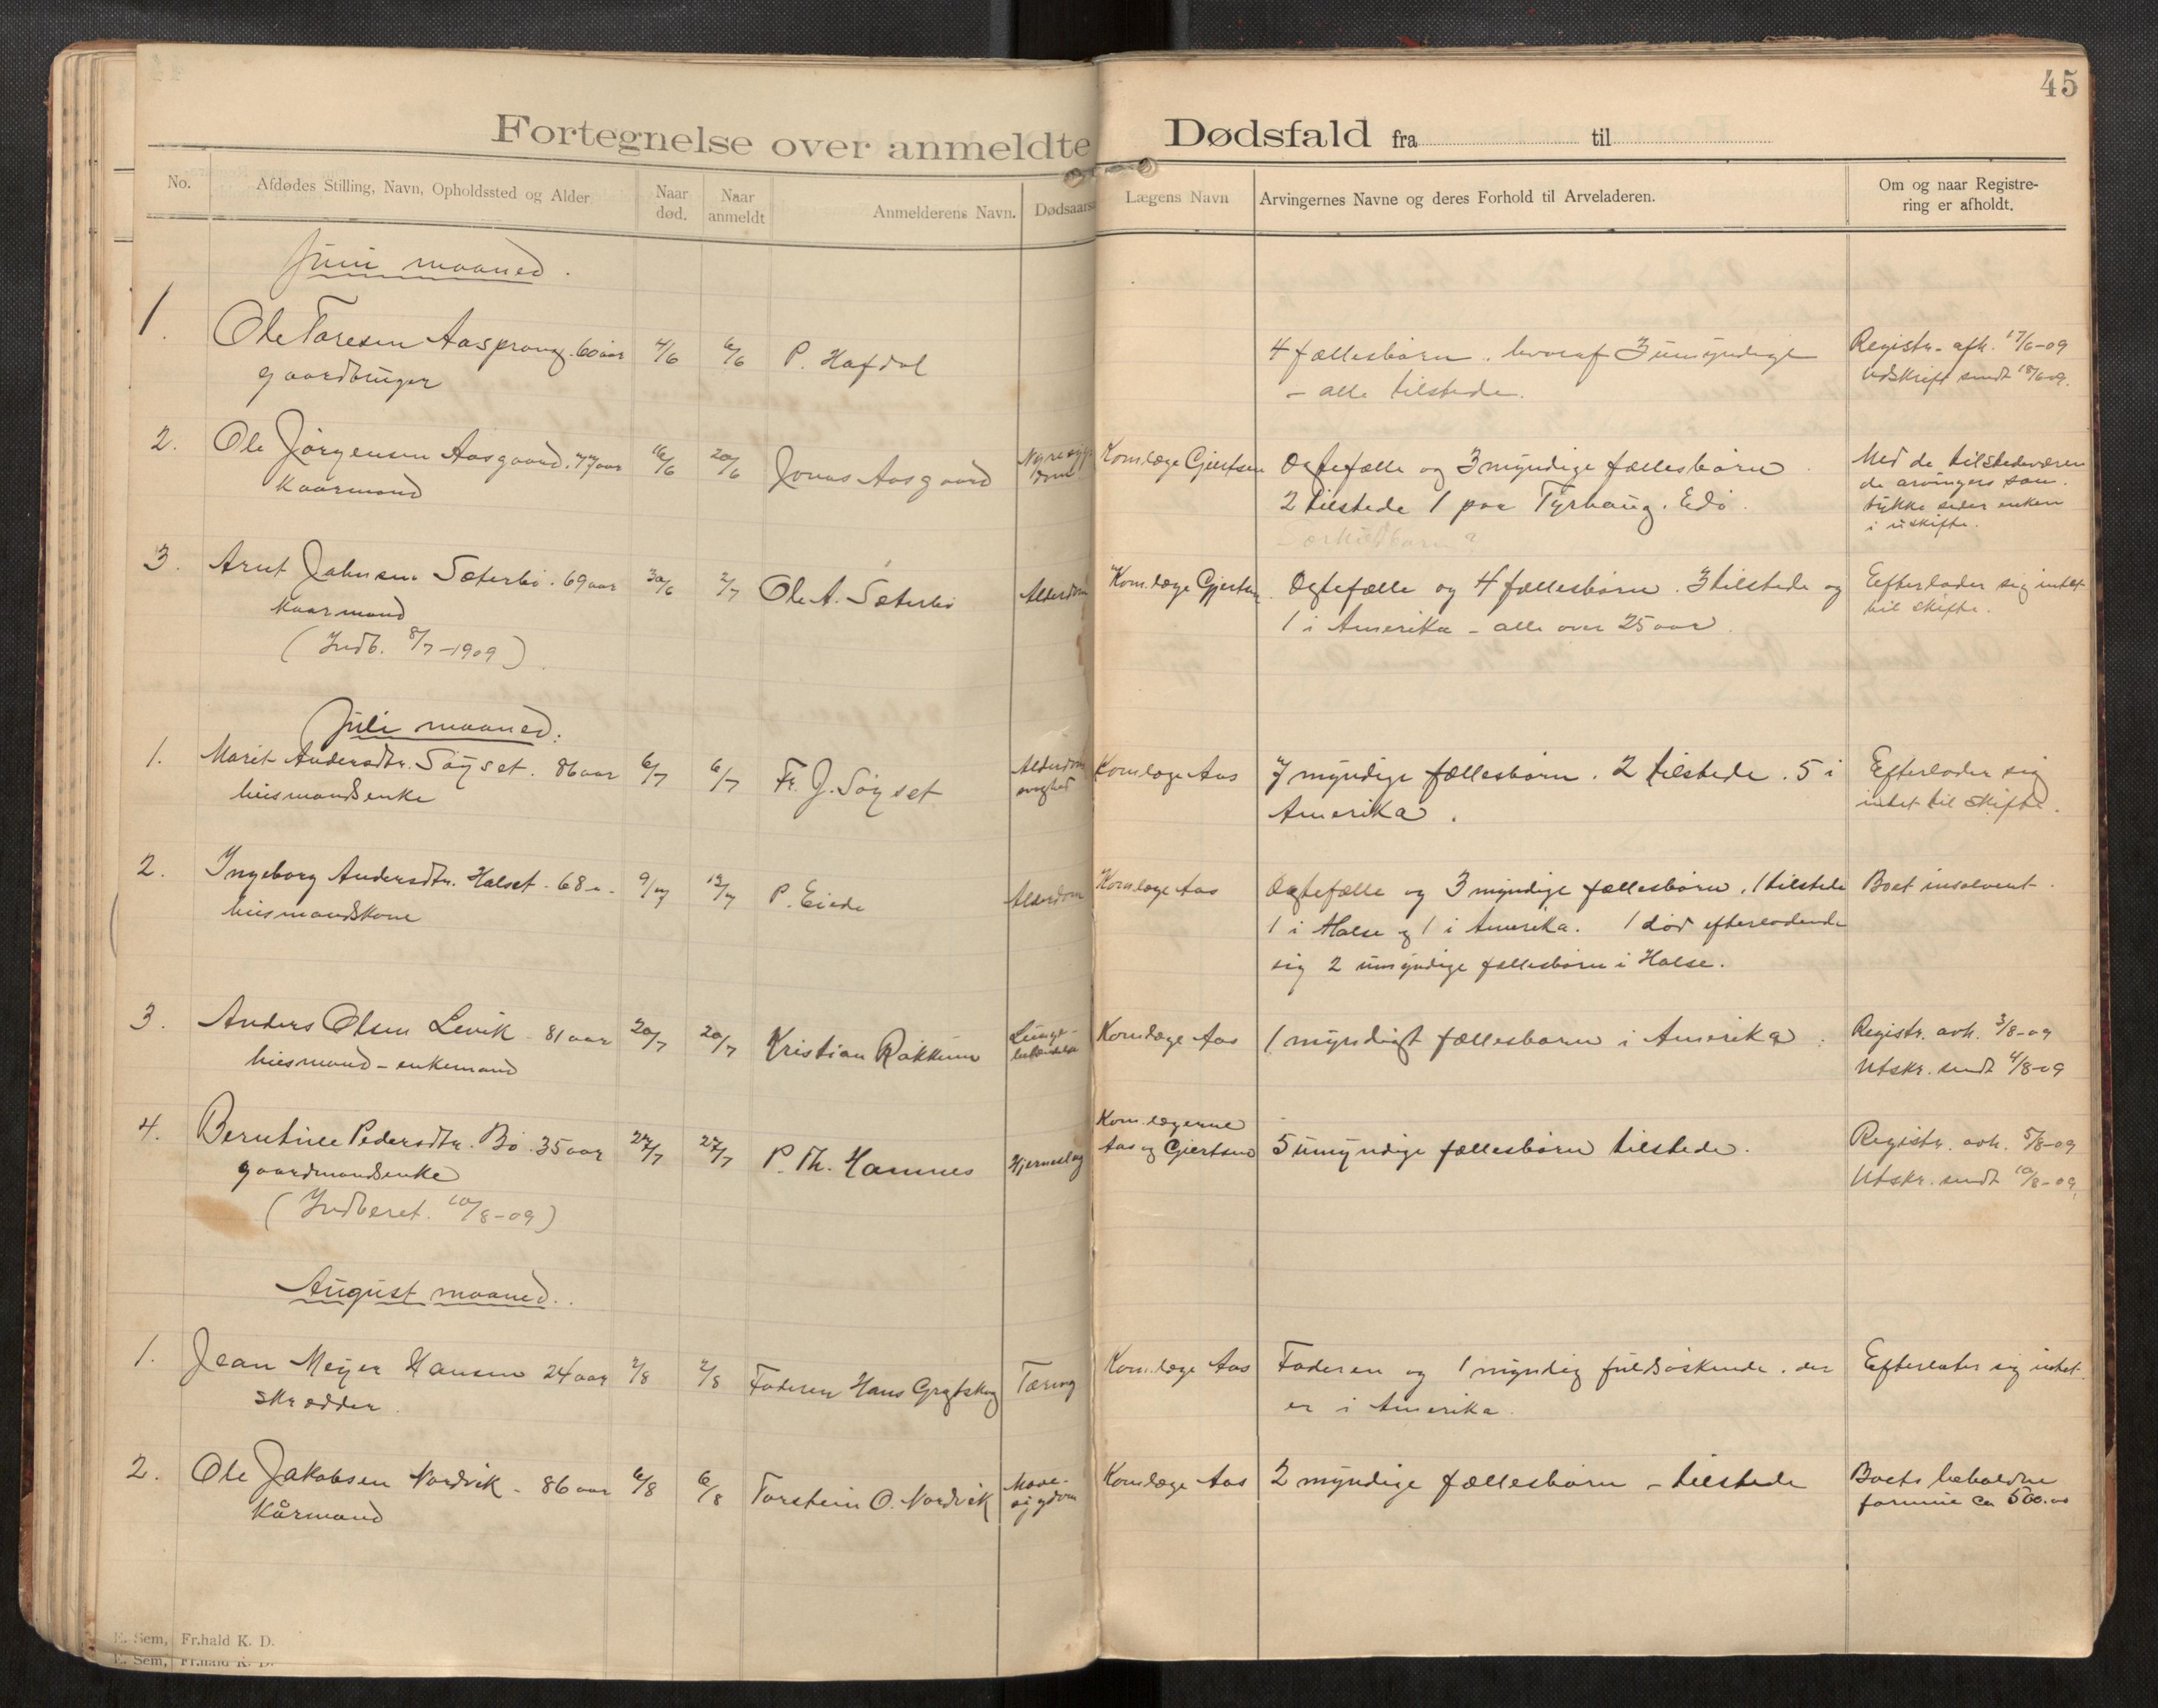 45
Fortegnelse over anmeldte Dødsfald fra til
No. Afdødes Stilling, Navn, Opholdssted og Alder. Naar død. Naar anmeldt Anmelderens Navn. Dødsaars Lægens Navn Arvingernes Navne og deres Forhold til Arveladeren. Om og naar Registrering er afholdt.
Juni maaned.
1. Ole Toresen Aasprong. 60 aar 4/6 6/6 P. Hafdal 4 fællesbørn. hvoraf 3 umyndige Registr. afh. 17/6-09
gaardbruger - alle tilstede. Udskrift sendt 18/6 09.
2. Ole Jørgensen Aasgaard. 77 aar 16/6 20/6 Jonas Aasgaard Nyresyg Kom.læge Gjertsen Ægtefælle og 3 myndige fællesbørn. Med de tilstedeværen
kaarmand dom 2 tilstede 1 paa Tyrhaug. Edø. de arvingers sam.
tykke sider enken
særkuldbarn? i uskifte.
3. Arnt Johnsen Sæterbø. 69 aar 30/6 2/7 Ole A. Sæterbø Alderdom Kom.læge Gjertsen. Ægtefælle og 4 fællesbørn. 3 tilstede og Eefterlader sig intet
kaarmand 1 i Amerika - alle over 25 aar. til skifte.
(Indb. 8/7-1909).
Juli maaned.
1. Marit Andersdtr. Søyset. 86 aar 6/7 6/7 Fr. J. Søyset Alderdoms Kom.læge Aas 7 myndige fællesbørn. 2 tilstede. 5 i Efterlader sig
husmandsenke svaghed Amerika. intet til skifte.
2. Ingeborg Andersdtr. Halset. 68 9/7 P. Eiede Alderdom Kom.læge Aas Ægtefælle og 3 myndige fællesbørn. 1 tilstede Boet insolvent.
husmandskone 1 i Halse og 1 i Amerika. 1 død efterladende
sig 2 umyndige fællesbørn i Halse.
3. Anders Olsen Levik - 81 aar 20/7 20/7 Kristian Røkkum Lunge- Kom.læge Aas 1 myndigt fællesbarn i Amerika. Registr. avh. 3/8-09
husmand - enkemand Utskr. sendt 4/8-09
4. Berntine Pedersdtr. Bø. 35 aar 27/7 27/7 P. Th. Hamnes Hjerneslag Kom.lægerne
Aas og Gjertsen 5 umyndige fællesbørn tilstede. Registr. avh. 5/8-09
gaardmandsenke Utskr. sendt 10/8-09.
(Indberet. 10/8-09)
August maaned.
1. Jean Meyer Hansen 24 aar 2/8 2/8 Faderen Hans Græfskog Tæring Kom.læge Aas Faderen og 1 myndig fuldsøskende. der Efterlater sig intet.
skrædder. er i Amerika.
2. Ole Jakobsen Nordvik - 86 aar 6/8 6/8 Torstein O. Nordvik Mave- Kom.læge Aas 2 myndige fællesbørn - tilstede Boets beholdne
Kårmand sygdom formue ca 500.00
E. Sem, Fr.hald K. D.
E. Sem, Fr.hald K. D.